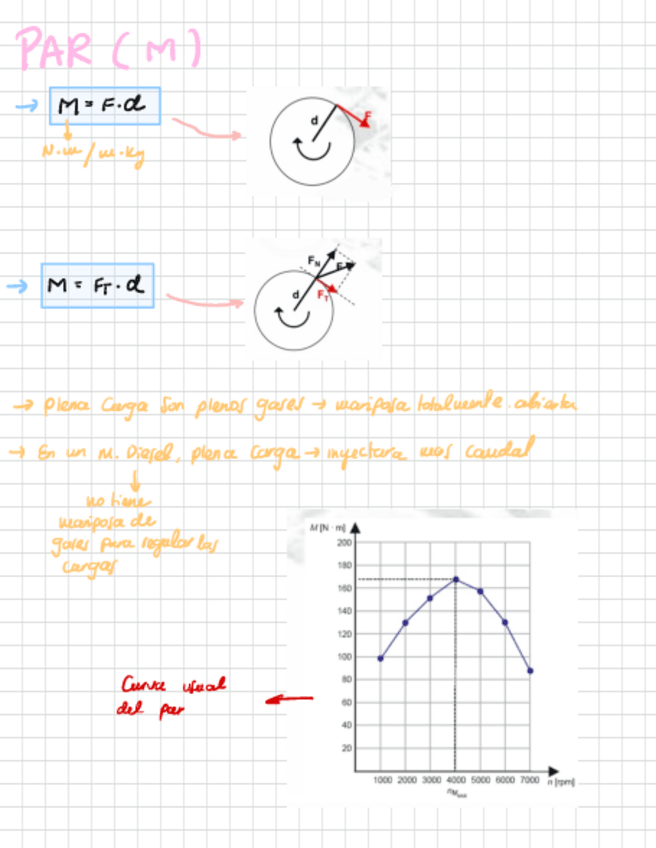 PAR (M)
→ M = F · d
N·m / m·kg
d
F
→ M = F_T · d
F_N
F
d
F_T
→ plena carga son plenos gases → mariposa totalmente abierta
→ En un M. Diesel, plena carga → inyectara mas caudal
no tiene
mariposa de
gases para regular las
cargas
M [N · m]
200
180
160
140
120
100
80
60
40
20
1000 2000 3000 4000 5000 6000 7000 n [rpm]
n_Mmáx
Curva usual
del par